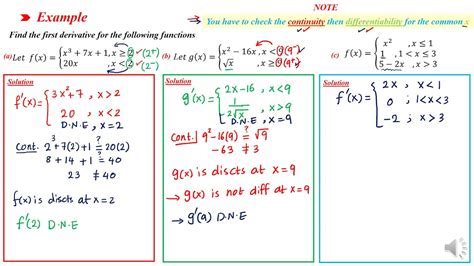 NOTE
Example
→ You have to check the continuity then differentiability for the common
Find the first derivative for the following functions
(a) Let f(x) = { x³ + 7x + 1, x ≥ 2 (2⁺)
20x , x < 2 (2⁻)
(b) Let g(x) = { x² − 16x, x < 9 (9⁻)
√x , x ≥ 9 (9⁺)
(c) f(x) = { x² , x ≤ 1
1 , 1 < x ≤ 3
5 − 2x , x > 3
Solution
f'(x) = { 3x² + 7 , x > 2
20 , x < 2
D.N.E , x = 2
Cont. 2³ + 7(2) + 1 ≟ 20(2)
8 + 14 + 1 ≟ 40
23 ≠ 40
f(x) is discts at x = 2
f'(2) D.N.E
Solution
g'(x) = { 2x − 16 , x < 9
1/(2√x) , x > 9
D.N.E , x = 9
Cont. 9² − 16(9) ≟ √9
−63 ≠ 3
g(x) is discts at x = 9
→ g(x) is not diff at x = 9
→ g'(9) D.N.E
Solution
f'(x) = { 2x , x < 1
0 ; 1 < x < 3
−2 ; x > 3